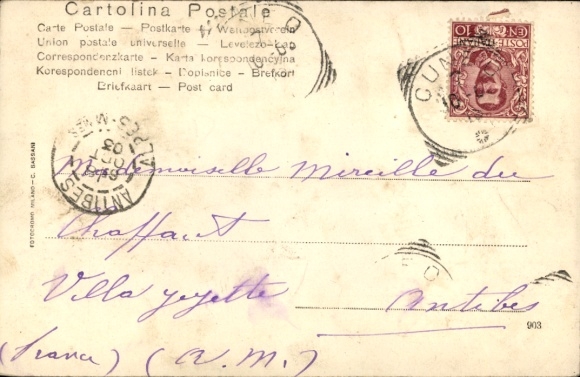 Cartolina Postale
Carte Postale — Postkarte — Weltpostverein
Union postale universelle — Levelezo-Lap
Correspondenzkarte — Karta korespondencyjna
Korespondencni listek — Dopisnice — Brefkort
Briefkaart — Post card
10
CUN
ANTIBES
ALPES-M
OCT
03
FOTOCROMO MILANO - C. BASSANI
Mademoiselle Mireille du
Chaffaut
Villa yeyette Antibes
903
(France) (A. M.)